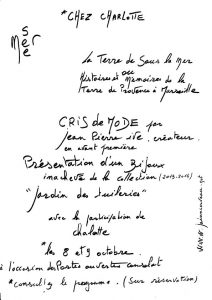 *CHEZ CHARLOTTE
mer
sère
La Terre de Sous la Mer
Histoires ou Mémoires de la
Terre de Provence à Marseille
CRIS de MODE par
Jean Pierre ité. créateur.
en avant première
Présentation d'un Bijoux
inachevé de la collection (2013.2014)
"Jardin des tuileries"
avec la participation de
chalotte
*les 8 et 9 octobre.
à l'occasion des Portes ouvertes consolat
*consultez le programme. (Sur réservation)